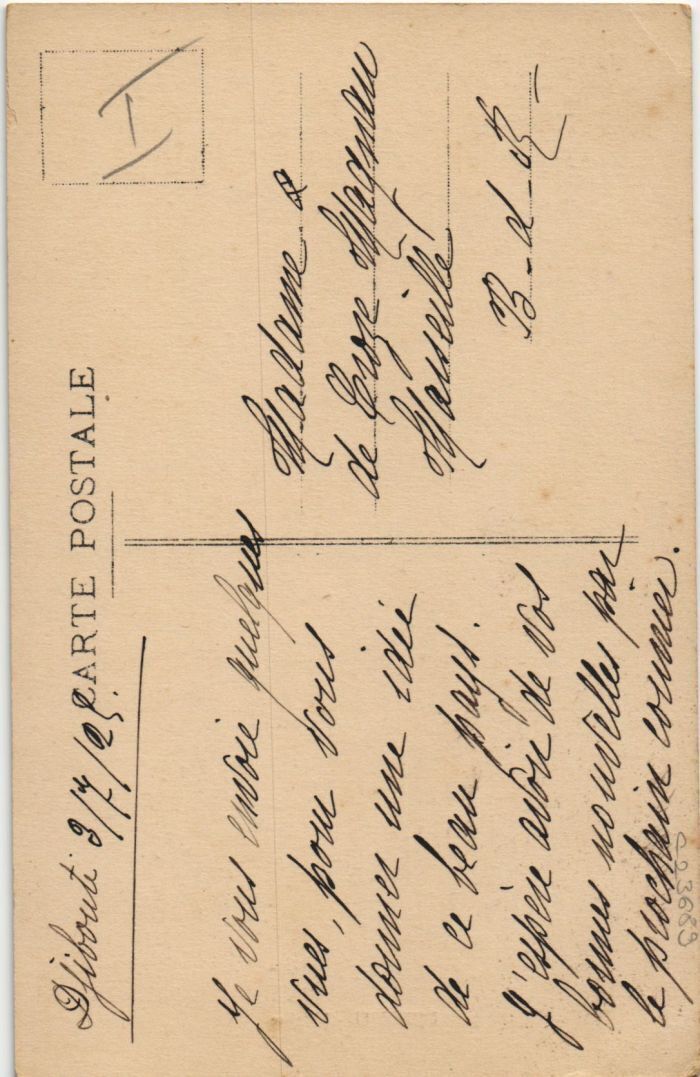 CARTE POSTALE
Djibouti 3/7/25.
Je vous envoie quelques
vues, pour vous
donner une idée
de ce beau pays.
J'espère avoir de vos
bonnes nouvelles par
le prochain courrier.
Madame
de Magnan
Marseille
B-d-R-